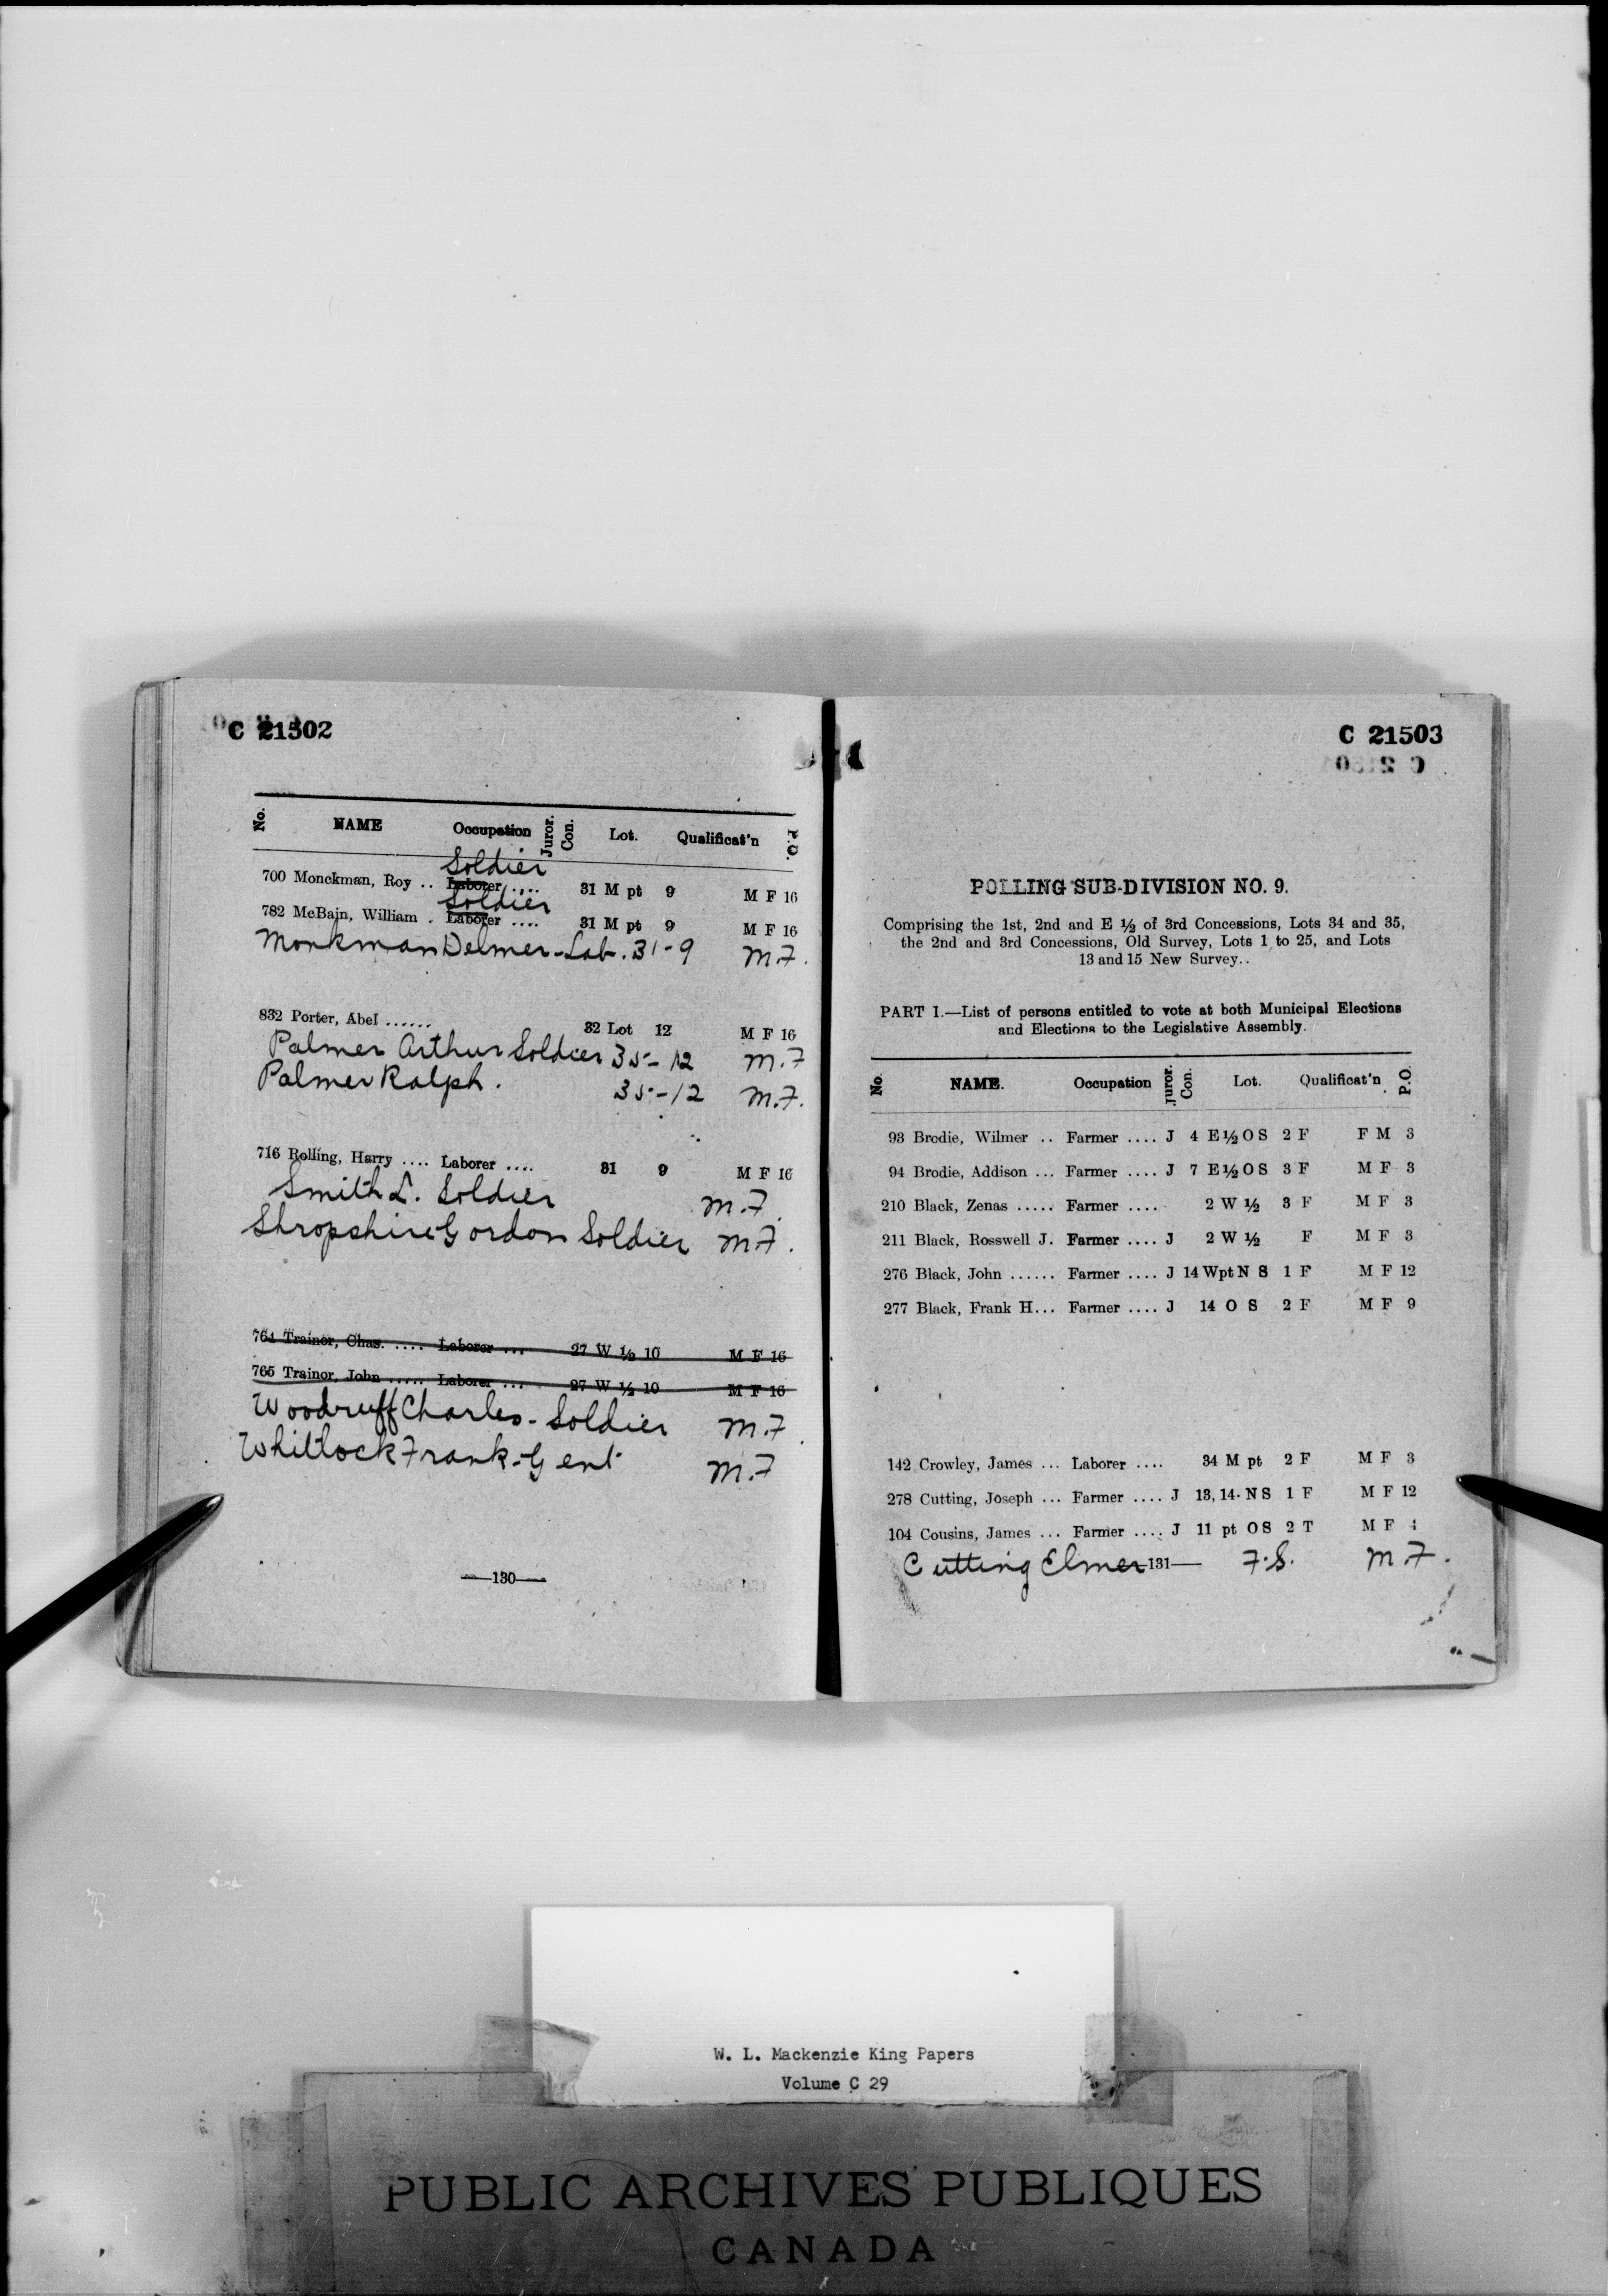 C 21502
No. NAME Occupation Juror. Con. Lot. Qualificat'n P.O.
Soldier
700 Monckman, Roy .. Laborer .... 31 M pt 9 M F 16
Soldier
782 McBain, William . Laborer .... 31 M pt 9 M F 16
Monkman Delmer - Lab. 31-9 M.F.
832 Porter, Abel ...... 32 Lot 12 M F 16
Palmer Arthur Soldier 35-12 M.F
Palmer Ralph. 35-12 M.F.
716 Rolling, Harry .... Laborer .... 31 9 M F 16
Smith L. Soldier M.F.
Shropshire Gordon Soldier M.F.
764 Trainor, Chas. .... Laborer ... 27 W ½ 10 M F 16
765 Trainor, John ..... Laborer ... 27 W ½ 10 M F 16
Woodruff Charles - Soldier M.F.
Whitlock Frank - Gent M.F
—130—
C 21503
POLLING SUB-DIVISION NO. 9.
Comprising the 1st, 2nd and E ½ of 3rd Concessions, Lots 34 and 35,
the 2nd and 3rd Concessions, Old Survey, Lots 1 to 25, and Lots
13 and 15 New Survey..
PART I.—List of persons entitled to vote at both Municipal Elections
and Elections to the Legislative Assembly.
No. NAME. Occupation Juror. Con. Lot. Qualificat'n P.O.
93 Brodie, Wilmer .. Farmer .... J 4 E½ O S 2 F F M 3
94 Brodie, Addison ... Farmer .... J 7 E½ O S 3 F M F 3
210 Black, Zenas ..... Farmer .... 2 W ½ 3 F M F 3
211 Black, Rosswell J. Farmer .... J 2 W ½ F M F 3
276 Black, John ...... Farmer .... J 14 Wpt N S 1 F M F 12
277 Black, Frank H... Farmer .... J 14 O S 2 F M F 9
142 Crowley, James ... Laborer .... 34 M pt 2 F M F 3
278 Cutting, Joseph ... Farmer .... J 13, 14 N S 1 F M F 12
104 Cousins, James ... Farmer .... J 11 pt O S 2 T M F 4
Cutting Elmer F.S. M.F.
—131—
W. L. Mackenzie King Papers
Volume C 29
PUBLIC ARCHIVES PUBLIQUES
CANADA